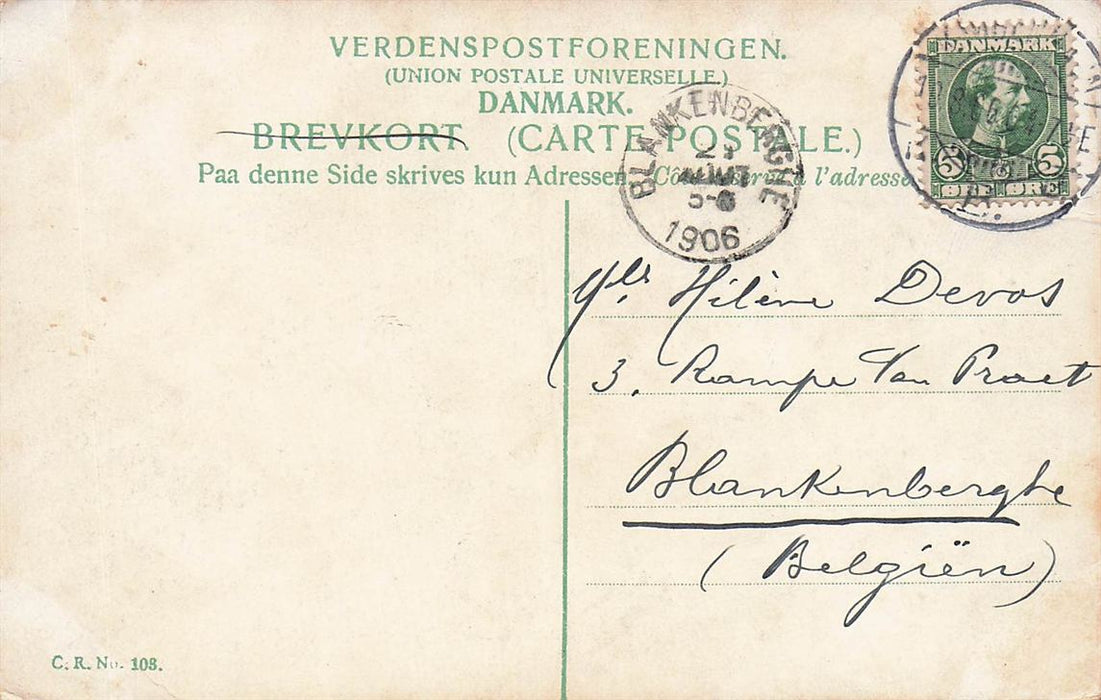 VERDENSPOSTFORENINGEN.
(UNION POSTALE UNIVERSELLE.)
DANMARK.
BREVKORT (CARTE POSTALE.)
Paa denne Side skrives kun Adressen à l'adresse
DANMARK
5 5
ØRE ØRE
BLANKENBERGHE
1906
Mlle Hélène Devos
3, Rampe Van Praet
Blankenberghe
(Belgiën)
C. R. No. 108.